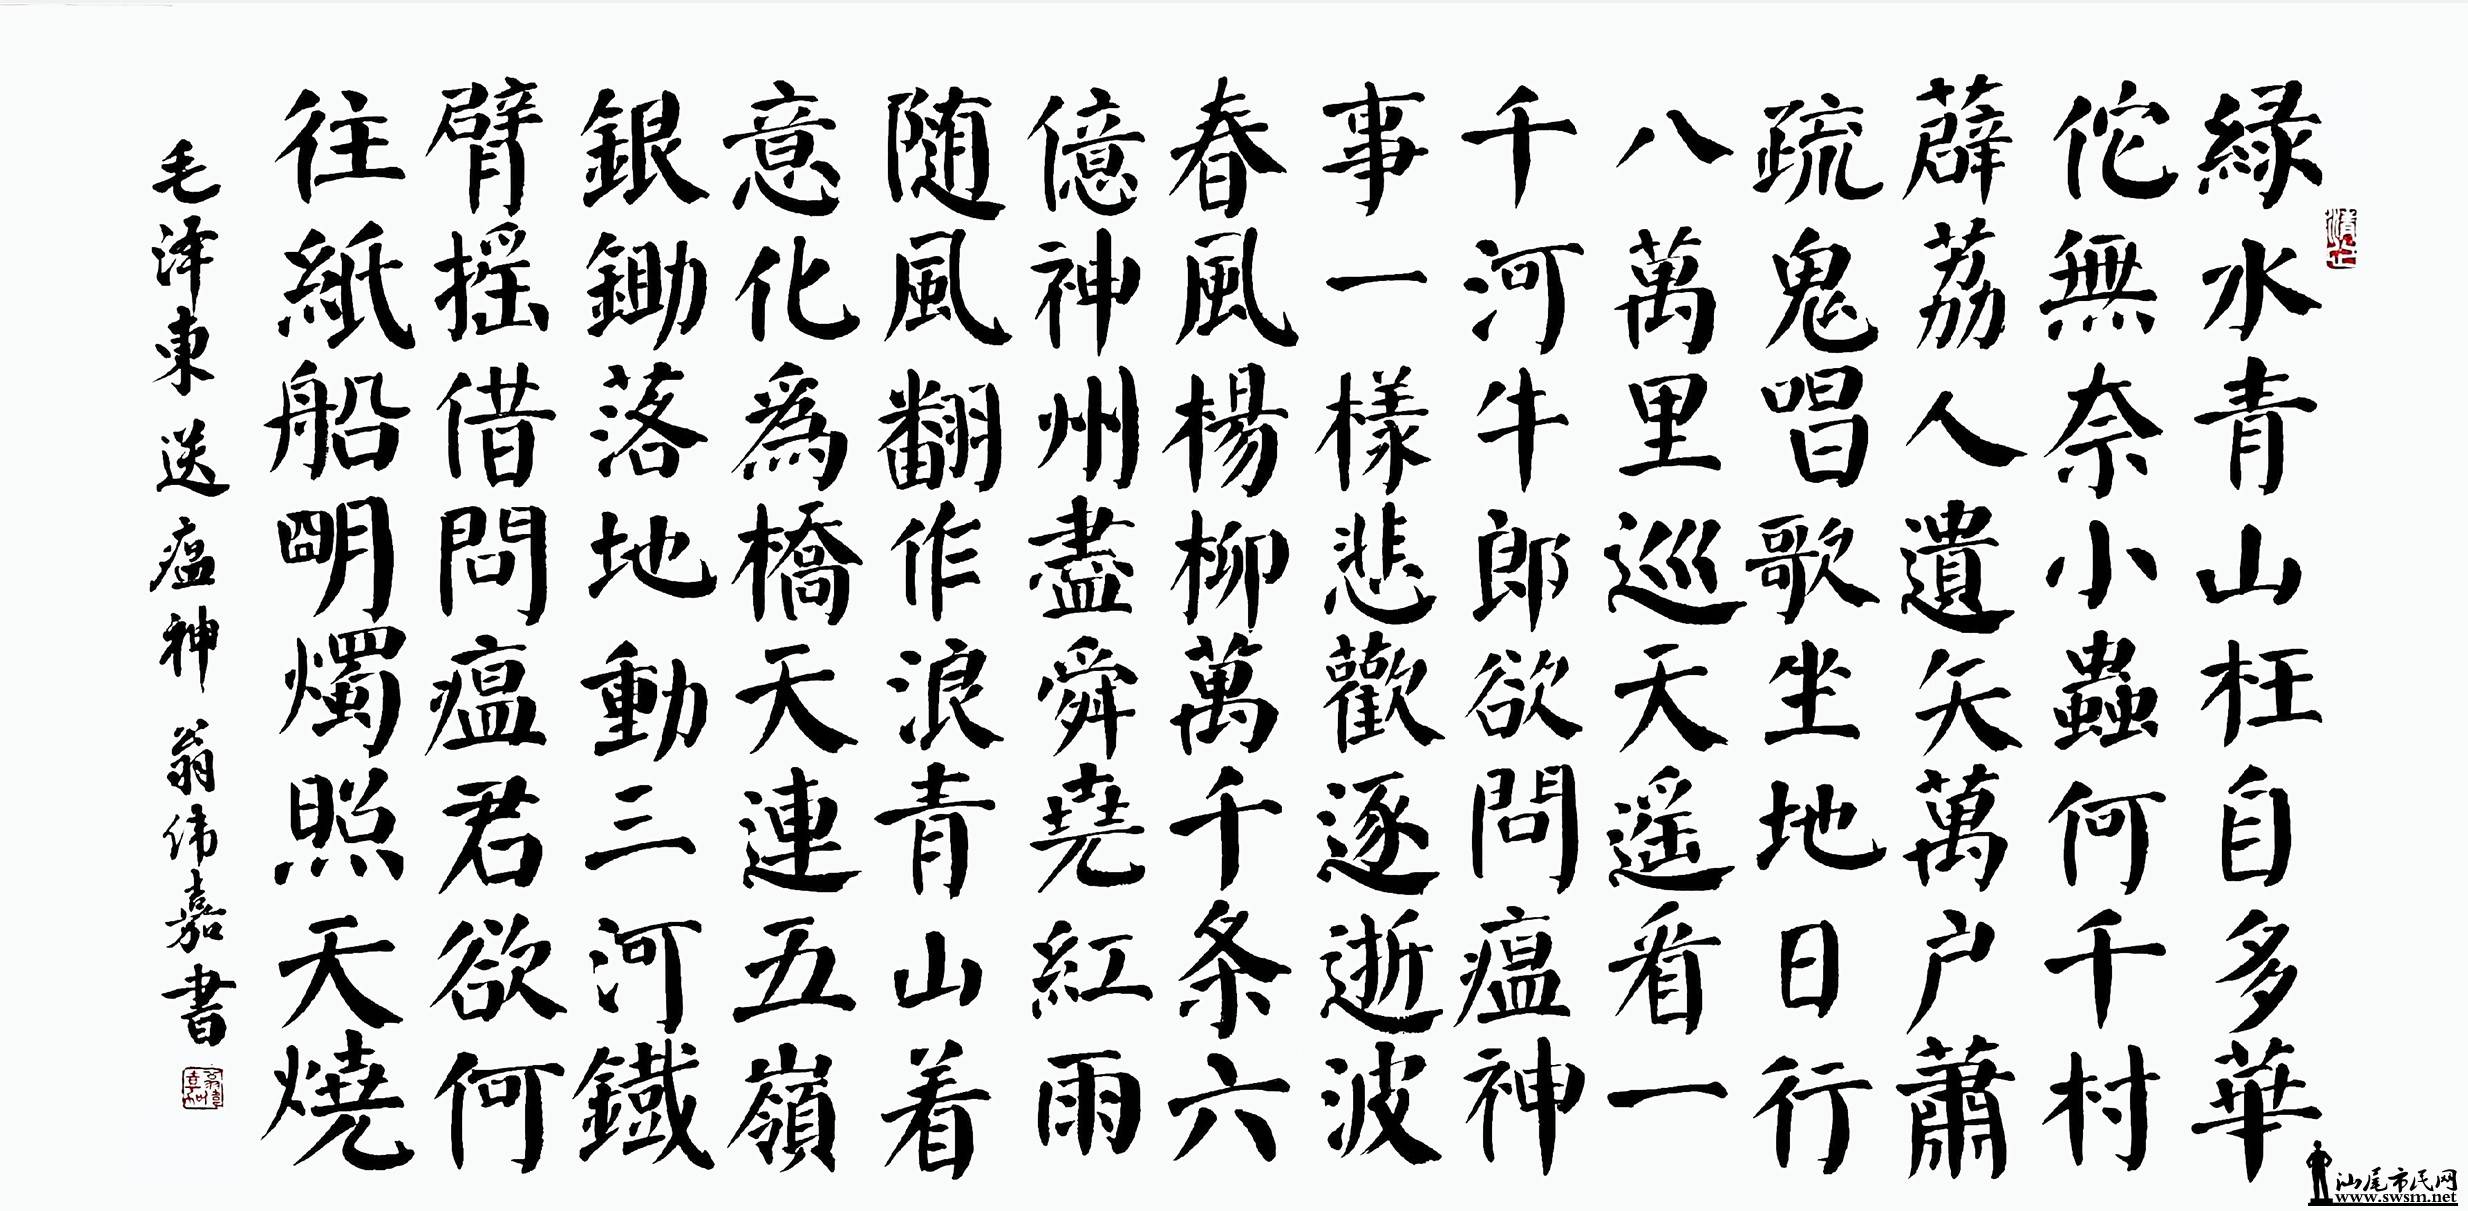 緑水青山枉自多華
佗無奈小蟲何千村
薜荔人遺矢萬户蕭
疏鬼唱歌坐地日行
八萬里巡天遥看一
千河牛郎欲問瘟神
事一樣悲歡逐逝波
春風楊柳萬千条六
億神州盡舜堯紅雨
随風翻作浪青山着
意化為橋天連五嶺
銀鋤落地動三河鐵
臂摇借問瘟君欲何
往紙船明燭照天燒
毛泽東送瘟神翁伟嘉書
汕尾市民网
www.swsm.net